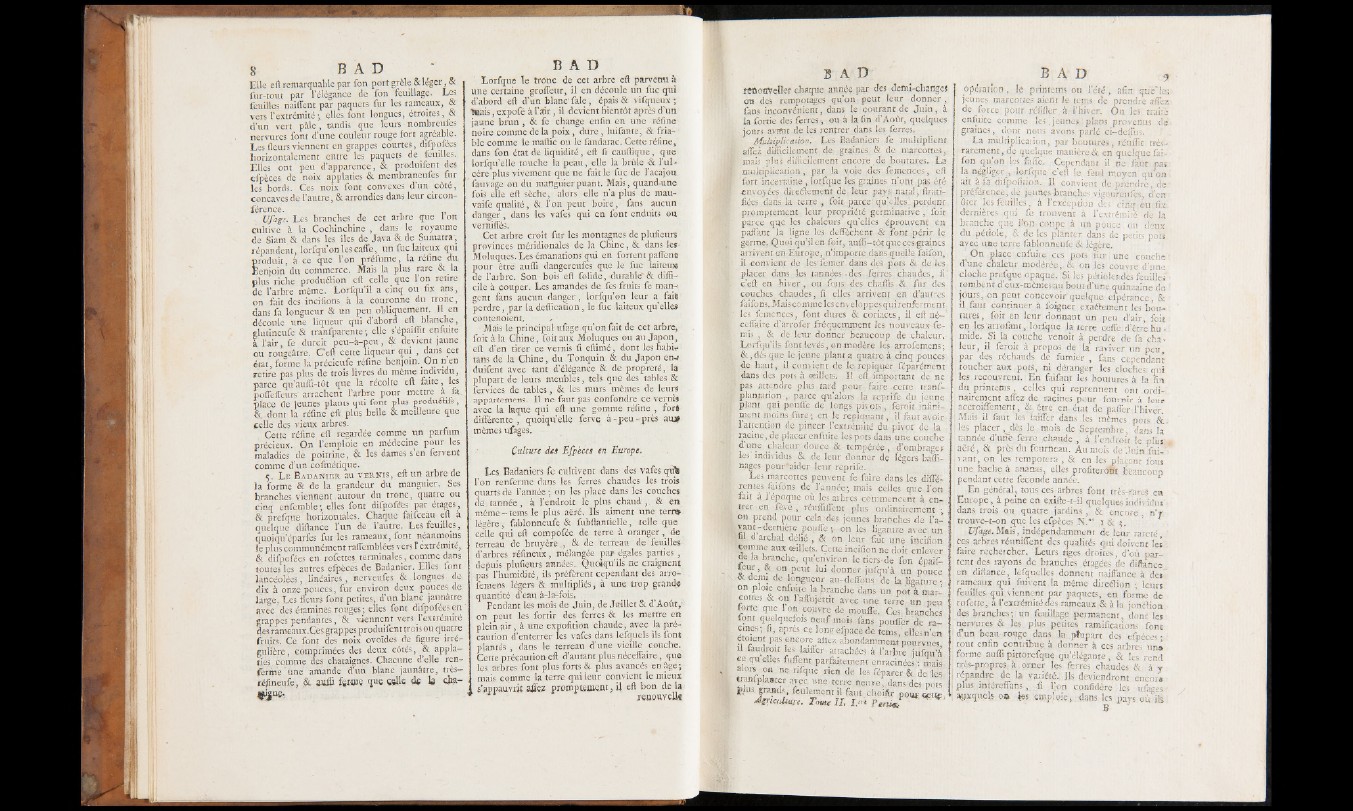 8 B A D
Elle est remarquable par son port grêle & léger, &
sur-tout par l'élégance de son feuillage. Les
feuilles naissent par paquets sur les rameaux, &
vers l'extrémité; elles sont longues, étroites, &
d'un vert pâle, tandis que leurs nombreuses
nervures sont d'une couleur rouge fort agréable.
Les fleurs viennent en grappes courtes, disposées
horizontalement entre les paquets de feuilles.
Elles ont peu d'apparence, & produisent des
espèces de noix applaties & membraneuses sur
les bords. Ces noix sont convexes d'un côté,
concaves de l'autre, & arrondies dans leur circon-
férence.
Usage. Les branches de cet arbre que l'on
cultive à la Cochinchine, dans le royaume
de Siam & dans les îles de Java & de Sumatra,
répandent, lorsqu'on les casse, un suc laiteux qui
produit, à ce que l'on présume, la résine du
Benjoin du commerce. Mais la plus rare & la
plus riche production est celle que l'on retire
de l'arbre même. Lorsqu'il a cinq ou six ans,
on fait des incisions à la couronne du tronc,
dans sa longueur & un peu obliquement. Il en
découle une liqueur qui d'abord est blanche,
glutineuse & transparente; elle s'épaissit ensuite
à l'air, se durcit peu-à-peu, & devient jaune
ou rougeâtre. C'est cette liqueur qui, dans cet
état, forme la précieuse résine benjoin. On n'en
retire pas plus de trois livres du même individu,
parce qu'aussi-tôt que la récolte est faite, les
possesseurs arrachent l'arbre pour mettre à sa
place de jeunes plants qui sont plus productifs,
& dont la résine est plus belle & meilleure que
celle des vieux arbres.
Cette résine est regardée comme un parfum
précieux. On l'emploie en médecine pour les
maladies de poitrine, & les dames s'en servent
comme d'un cosmétique.
5. LE BADANIER au VERNIS, est un arbre de
la forme & de la grandeur du manguier. Ses
branches viennent autour du tronc, quatre ou
cinq ensemble; elles sont disposées par étages,
& presque horizontales. Chaque faisceau est à
quelque distance l'un de l'autre. Les feuilles,
quoiqu'éparses sur les rameaux, sont néanmoins
le plus communément rassemblées vers l'extrémité,
& disposées en rosettes terminales, comme dans
toutes les autres espèces de Badanier. Elles sont
lancéolées, linéaires, nerveuses & longues de
dix à onze pouces, sur environ deux pouces de
large. Les fleurs sont petites, d'un blanc jaunâtre
avec des étamines rouges; elles sont disposées en
grappes pendantes, & viennent vers l'extrémité
des rameaux. Ces grappes produisent trois ou quatre
fruits. Ce sont des noix ovoïdes de figure irré-
gulière, comprimées des deux côtés, & appla-
ties comme des chataignes. Chacune d'elle ren-
ferme une amande d'un blanc jaunâtre, très-
résineuse, & aussi ferme que celle de la cha-
taigne.
B A D
Lorsque le tronc de cet arbre est parvenu à
une certaine grosseur, il en découle un suc qui
d'abord est d'un blanc sale, épais & visqueux;
mais, exposé à l'air, il devient bientôt après d'un
jaune brun, & se change enfin en une résine
noire comme de la poix, dure, luisante, & fria-
ble comme le mastic ou le sandarac. Cette résine,
dans son état de liquidité, est si caustique, que
lorsqu'elle touche la peau, elle la brûle & l'ul-
cère plus vivement que ne fait le suc de l'acajou
sauvage ou du manguier puant. Mais, quand une
fois elle est sèche, alors elle n'a plus de mau-
vaise qualité, & l'on peut boire, sans aucun
danger, dans les vases qui en sont enduits ou
vernissés.
Cet arbre croit sur les montagnes de plusieurs
provinces méridionales de la Chine, & dans les
Moluques. Les émanations qui en sortent passent
pour être aussi dangereuses que le suc laiteux
de l'arbre. Son bois est solide, durable & diffi-
cile à couper. Les amandes de ses fruits se man-
gent sans aucun danger, lorsqu'on leur a fait
perdre, par la dessication, le suc laiteux qu'elles
contenoient.
Mais le principal usage qu'on fait de cet arbre,
soit à la Chine, soit aux Moluques ou au Japon,
est d'en tirer ce vernis si estimé, dont les habi-
tans de la Chine, du Tonquin & du Japon en-
duisent avec tant d'élégance & de propreté, la
plupart de leurs meubles, tels que des tables &
services de tables, & les murs mêmes de leurs
appartemens. Il ne faut pas confondre ce vernis
avec la laque qui est une gomme résine, fort
différente, quoiqu'elle serve à-peu-près aux
mêmes usages.
Culture des Espèces en Europe.
Les Badaniers se cultivent dans des vases que
l'on renferme dans les serres chaudes les trois
quarts de l'année; on les place dans les couches
de tannée, à l'endroit le plus chaud, & en
même-tems le plus aéré. Ils aiment une terre
légère, sablonneuse & substantielle, telle que
celle qui est composée de terre à oranger, de
terreau de bruyère, & de terreau de feuilles
d'arbres résineux, mélangée par égales parties,
depuis plusieurs années. Quoiqu'ils ne craignent
pas l'humidité, ils préfèrent cependant des arro-
semens légers & multipliés, à une trop grande
quantité d'eau à-la-fois.
Pendant les mois de Juin, de Juillet & d'Août,
on peut les sortir des serres & les mettre en
plein air, à une exposition chaude, avec la pré-
caution d'enterrer les vases dans lesquels ils sont
plantés, dans le terreau d'une vieille couche.
Cette précaution est d'autant plus nécessaire, que
les arbres sont plus forts & plus avancés en âge;
mais comme la terre qui leur convient le mieux
s'appauvrit assez promptement, il est bon de la
renouveller
B A D
renouveller chaque année par des demi-changes
ou des rempotages qu'on peut leur donner,
sans inconvénient, dans le courant de Juin, à
la sortie des serres, ou à la fin d'Août, quelques
jours avant de les rentrer dans les serres.
Multiplication. Les Badaniers se multiplient
assez difficilement de graines & de marcottes,
mais plus difficilement encore de boutures. La
multiplication, par la voie des semences, est
fort incertaine, lorsque les graines n'ont pas été
envoyées directement de leur pays natal, strati-
fiées dans la terre, soit parce qu'elles perdent
promptement leur propriété germinative, soit
parce que les chaleurs qu'elles éprouvent en
passant la ligne les dessèchent & font périr le
germe. Quoi qu'il en soit, aussi-tôt que ces graines
arrivent en Europe, n'importe dans quelle saison,
il convient de les semer dans des pots & de les
placer dans les tannées des serres chaudes, si
c'est en hiver, ou sous des chassis & sur des
couches chaudes, si elles arrivent en d'autres
saisons. Mais comme les enveloppes qui renferment
les semences, sont dures & coriaces, il est né-
cessaire d'arroser fréquemment les nouveaux se-
mis, & de leur donner beaucoup de chaleur.
Lorsqu'ils sont levés, on modère les arrosemens;
&, dès que le jeune plant a quatre à cinq pouces
de haut, il convient de le repiquer séparément
dans des pots à œillets. Il est important de ne
pas attendre plus tard pour faire cette trans-
plantation, parce qu'alors la reprise du jeune
plant qui pousse de longs pivots, seroit infini-
ment moins sûre; en le repiquant, il faut avoir
l'attention de pincer l'extrémité du pivot de la
racine, de placer ensuite les pots dans une couche
d'une chaleur douce & tempérée, d'ombrager
les individus & de leur donner de légers bassi-
nages pour aider leur reprise.
Les marcottes peuvent se faire dans les diffé-
rentes saisons de l'année; mais celles que l'on
fait à l'époque où les arbres commencent à en-
trer en sève, réussissent plus ordinairement;
on prend pour cela des jeunes branches de l'a-
vant-dernière pousse; on les ligature avec un
fil d'archal délié, & on leur fait une incision
comme aux œillets. Cette incision ne doit enlever
de la branche, qu'environ le tiers de son épais-
seur, & on peut lui donner jusqu'à un pouce
& demi de longueur au-dessous de la ligature;
on ploie ensuite la branche dans un pot à mar-
cottes & on l'assujettit avec une terre un peu
forte que l'on couvre de mousse. Ces branches
sont quelquefois neuf mois sans pousser de ra-
cines; si, après ce long espace de tems, elles n'en
étoient pas encore assez abondamment pourvues,
il faudroit les laisser attachées à l'arbre jusqu'à
ce qu'elles fussent parfaitement enracinées; mais
alors on ne risque rien de les séparer & de les
transplanter avec une terre neuve, dans des pots
plus grands, seulement il faut choisir pour cette
Agriculture. Tome II. I.re Partie.
B A D 9
opération, le printems ou l'été, afin que les
jeunes marcottes aient le tems de prendre assez
de force pour résister à l'hiver. On les traite
ensuite comme les jeunes plants provenus de
graines, dont nous avons parlé ci-dessus.
La multiplication, par boutures, réussit très-
rarement, de quelque manière & en quelque sai-
son qu'on les fasse. Cependant il ne faut pas
la négliger, lorsque c'est le seul moyen qu'on
ait à sa disposition. Il convient de prendre, de
préférence, de jeunes branches vigoureuses, d'en
ôter les feuilles, à l'exception des cinq ou six
dernières qui se trouvent à l'extrémité de la
branche que l'on coupe à un pouce ou deux
du pétiole, & de les planter dans de petits pots
avec une terre sablonneuse & légère.
On place ensuite ces pots sur une couche
d'une chaleur modérée, & on les couvre d'une
cloche presque opaque. Si les pétioles des feuilles
tombent d'eux-mêmes au bout d'une quinzaine de
jours, on peut concevoir quelque espérance, &
il faut continuer à soigner exactement les bou-
tures, soit en leur donnant un peu d'air, soit
en les arrosant, lorsque la terre cesse d'être hu-
mide. Si la couche venoit à perdre de sa cha-
leur, il seroit à propos de la raviver un peu,
par des réchauds de fumier, sans cependant
toucher aux pots, ni déranger les cloches qui
les recouvrent. En faisant les boutures à la fin
du printems, celles qui reprennent ont ordi-
nairement assez de racines pour fournir à leur
accroissement, & être en état de passer l'hiver.
Mais il faut les laisser dans les mêmes pots &
les placer, dès le mois de Septembre, dans la
tannée d'une serre chaude, à l'endroit le plus
aéré, & près du fourneau. Au mois de Juin sui-
vant, on les rempotera, & en les plaçant sous
une bache à ananas, elles profiteront beaucoup
pendant cette seconde année.
En général, tous ces arbres sont très-rares en
Europe, à peine en existe-t-il quelques individus
dans trois ou quatre jardins, & encore, n'y
trouve-t-on que les espèces N.os 1 & 4.
Usage. Mais, indépendamment de leur rareté,
ces arbres réunissent des qualités qui doivent les
faire rechercher. Leurs tiges droites, d'où par-
tent des rayons de branches étagées de distance
en distance, lesquelles donnent naissance à des
rameaux qui suivent la même direction; leurs
feuilles qui viennent par paquets, en forme de
rosette, à l'extrémité des rameaux & à la jonction
des branches; un feuillage permanent, dont les
nervures & les plus petites ramifications sont
d'un beau rouge dans la plupart des espèces;
tout enfin contribue à donner à ces arbres une
forme aussi pittoresque qu'élégante, & les rend
très-propres à orner les serres chaudes & à y
répandre de la variété. Ils deviendront encore
plus intéressans, si l'on considère les usages
auxquels on les emploie, dans les pays où ils
B